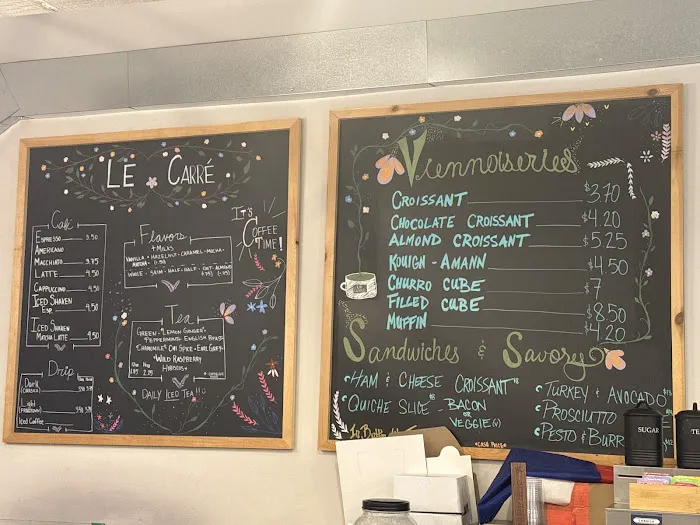 LE CARRÉ
Café
ESPRESSO 3.50
AMERICANO
MACCHIATO 3.75
LATTE 4.50
CAPPUCCINO 4.50
ICED SHAKEN
ESP. 4.50
ICED SHAKEN
MATCHA LATTE 4.50
Drip
Dark
Light
Iced Coffee
Flavors
+ MILKS
VANILLA - HAZELNUT - CARAMEL - MOCHA -
MATCHA
WHOLE - SKIM - HALF-HALF - OAT - ALMOND
IT'S
COFFEE
TIME!
Tea
GREEN - "LEMON GINGER"
PEPPERMINT - ENGLISH BREAK
"CHAMOMILE" CHAI SPICE - EARL GREY -
"WILD RASPBERRY
HIBISCUS"
DAILY ICED TEA!!
Viennoiseries
CROISSANT $3.70
CHOCOLATE CROISSANT $4.20
ALMOND CROISSANT $5.25
KOUIGN - AMANN $4.50
CHURRO CUBE $7
FILLED CUBE $8.50
MUFFIN $4.20
Sandwiches & Savory
• HAM & CHEESE CROISSANT
• QUICHE SLICE - BACON
OR
VEGGIE (V)
• TURKEY & AVOCADO
• PROSCIUTTO
• PESTO & BURR
SUGAR
TE